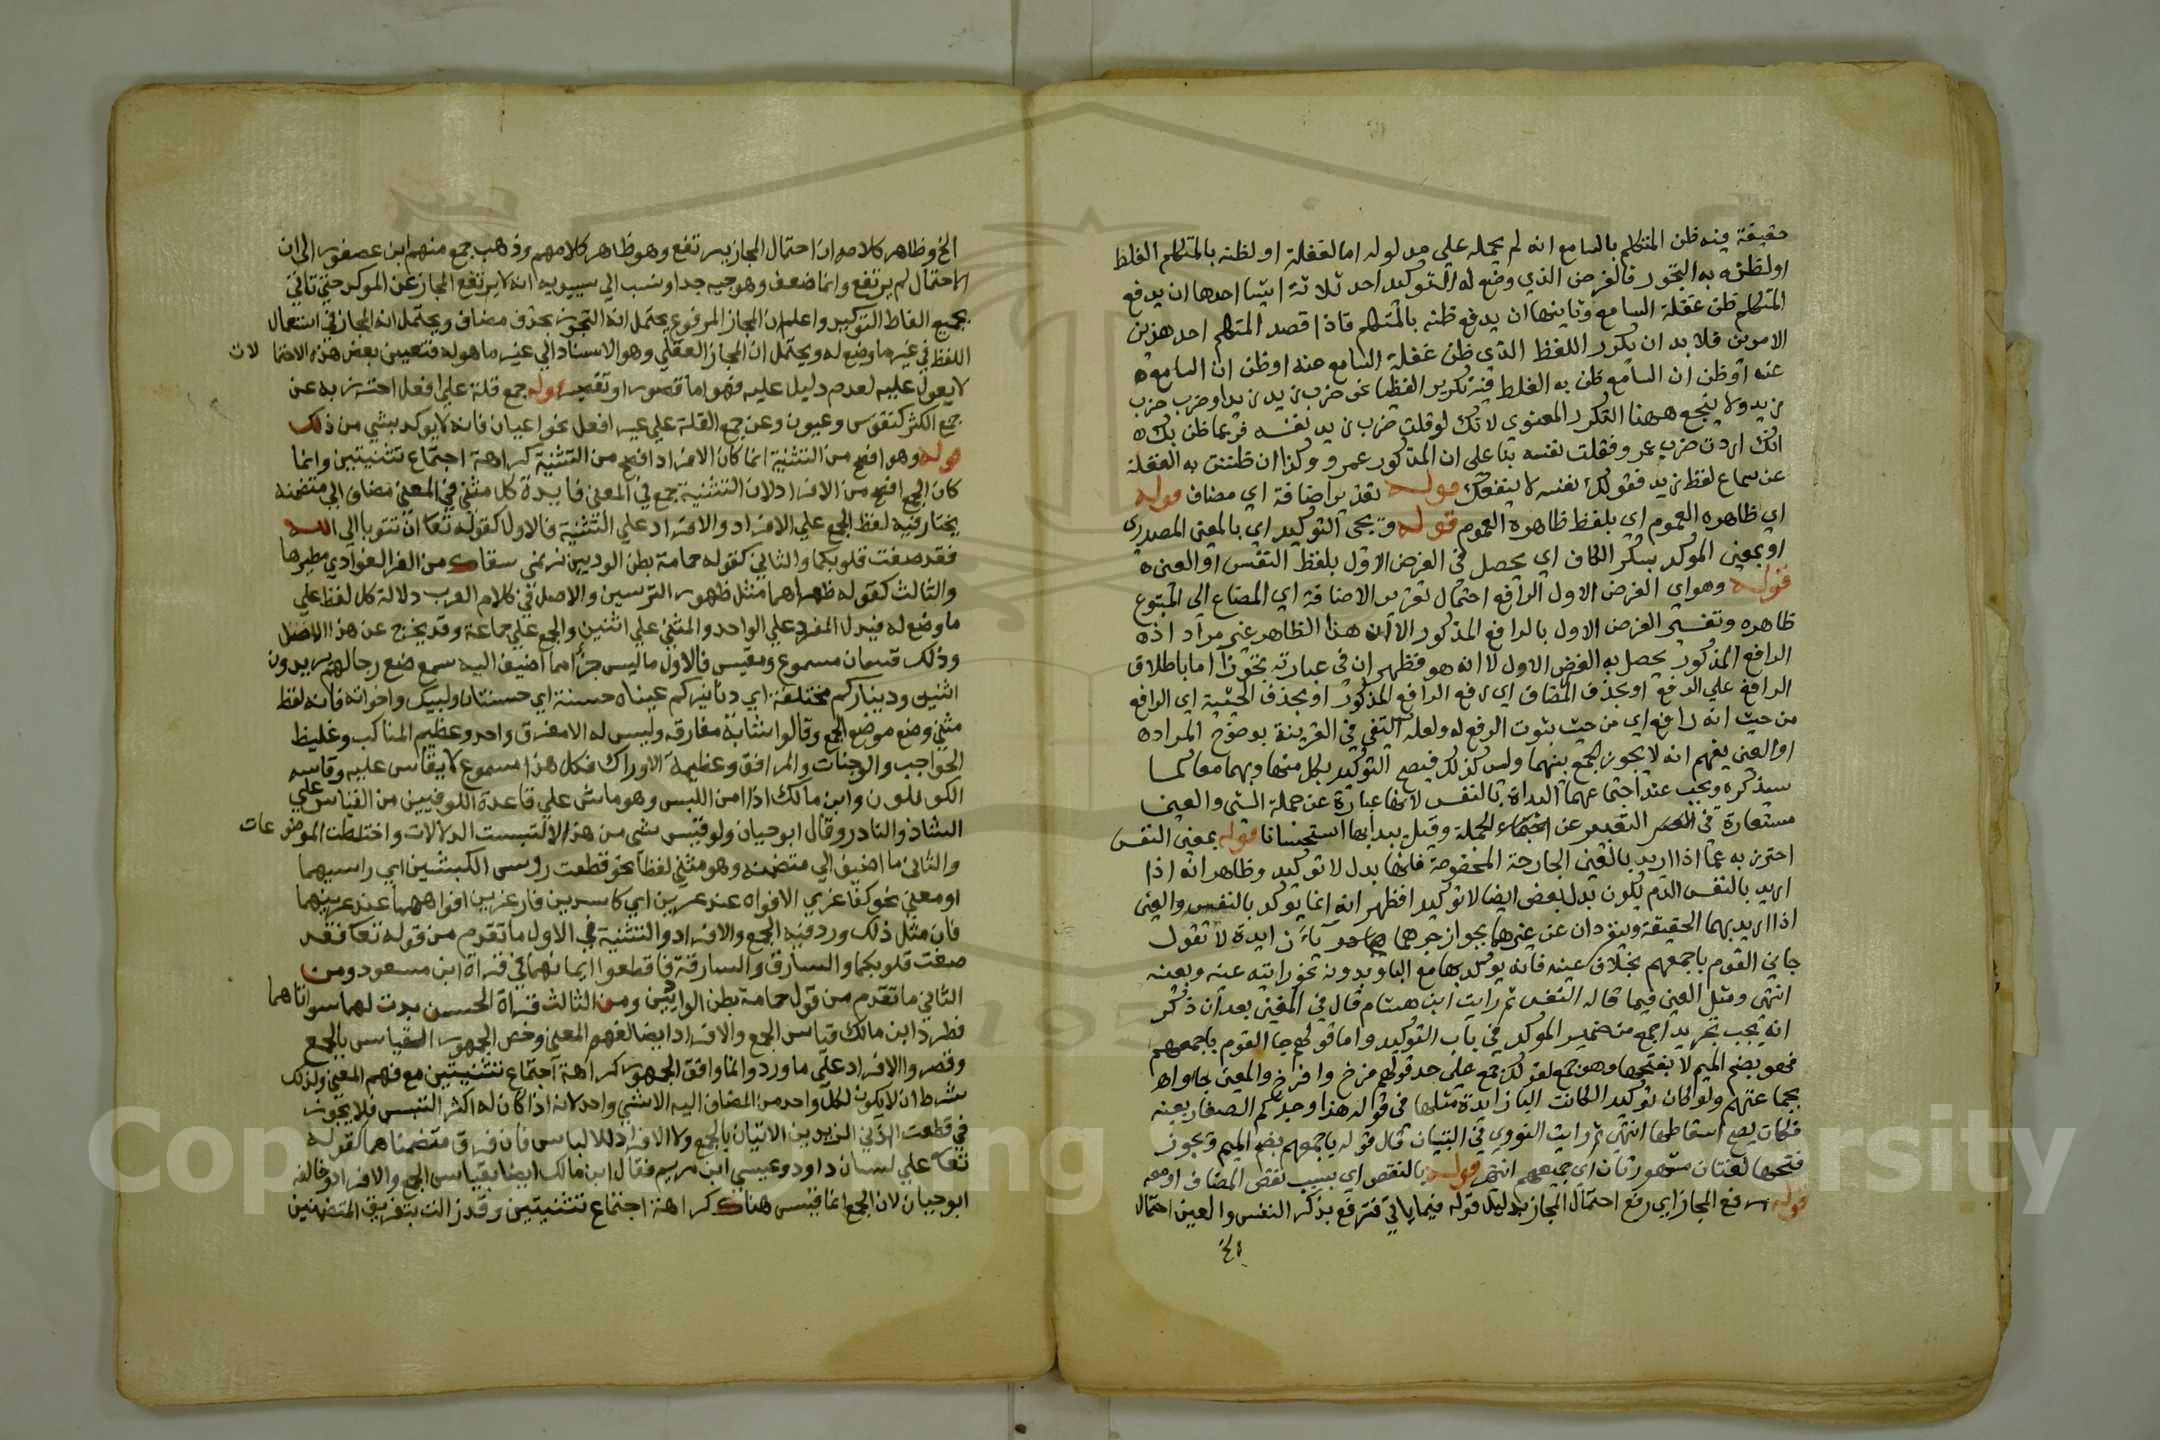 حقيقة فيه ظن المتكلم بالسامع انه لم يحمله علي مدلوله اما لغفلة او لظنه بالمتكلم الغلط
او لظنه به التجوز فالغرض الذي وضع له التوكيد احد ثلاثة اشيا احدها ان يدفع
المتكلم ظن غفلة السامع وثانيها ان يدفع ظنه بالمتكلم فاذا قصد المتكلم احد هذين
الامرين فلا بد ان يكرر اللفظ الذي ظن غفلة السامع عنه او ظن ان السامع
عنه او ظن ان السامع ظن به الغلط فيه تكرير اللفظ نحو ضرب زيد زيد او ضرب ضرب
زيد ولا ينجع ههنا التكرر المعنوي لانك لو قلت ضرب زيد نفسه فربما ظن بك
انك اردت ضرب عمرو فقلت نفسه بنا علي ان المذكور عمرو وكذا ان ظننت به الغفلة
عن سماع لفظ زيد فقولك نفسه لا ينفعك قوله تقدير اضافة اي مضاف قوله
اي ظاهره العموم اي بلفظ ظاهره العموم قوله ويجي التوكيد اي بالمعني المصدري
او بمعني الموكد بكسر الكاف اي يحصل في الغرض الاول بلفظ النفس او العين
قوله وهو اي الغرض الاول الرافع احتمال تقدير الاضافة اي المضاف الي المتبوع
ظاهره وتفسير الغرض الاول بالرافع المذكور الا ان هذا الظاهر غير مراد اذ
الرافع المذكور يحصل به الغرض الاول لا انه هو فظهر ان في عبارته تجوزا اما باطلاق
الرافع علي الرفع او بحذف المضاف اي رفع الرافع المذكور او بحذف الحيثية اي الرافع
من حيث انه رافع اي من حيث ثبوت الرفع له ولعله اكتفي في القرينة بوضوح المراد
او العين يفهم انه لا يجوز الجمع بينهما وليس كذلك فيصح التوكيد بكل منهما وبهما معا كما
سيذكره ويجب عند اجتماعهما البداة بالنفس لانها عبارة عن جملة الشي والعين
مستعارة في التعبير عن الجملة وقيل يبدا بها استحسانا قوله بمعني النفس
احترز به عما اذا اريد بالعين الجارحة المخصوصة فانها بدل لا توكيد وظاهر انه اذا
اريد بالنفس الدم يكون بدل بعض ايضا لا توكيد افظهر انه انما يوكد بالنفس والعين
اذا اريد بهما الحقيقة وينفردان عن غيرهما بجواز جرهما بباء زايدة لا تقول
جاني القوم باجمعهم بخلاف عينه فانه يوكد بها مع الباو بدونه نحو رايته عينه وبعينه
انتهي ومثل العين فيما قاله النفس ثم رايت ابن هشام قال في المغني بعد ان ذكر
انه يجب تجريد اجمع من ضمير الموكد في باب التوكيد واما قولهم جا القوم باجمعهم
فهو بضم الميم لا بفتحها وهو جمع لقولك جمع علي حد قولهم فرخ وافرخ والمعني جاوا
بجماعتهم ولو كان توكيد الكانت البا زايدة مثلها في قوله هذا وجدكم الصغار بعينه
فكان يصح اسقاطها انتهي ثم رايت النووي في التبيان قال قوله باجمعهم بضم الميم ويجوز
فتحها لغتان مشهورتان اي جميعهم انتهي قوله بالنقص اي بسبب نقص المضاف
قوله رفع المجاز اي رفع احتمال المجاز بدليل قوله فيما ياتي فترفع بذكر النفس والعين احتمال
الخ
الخ وظاهر كلامه ان احتمال المجاز يرتفع وهو ظاهر كلامهم وذهب جمع منهم ابن عصفور الي ان
الاحتمال لم يرتفع وانما ضعف وهو جيه جدا ونسب الي سيبويه انه لا يرتفع المجاز عن الموكد حتي تاتي
بجميع الفاظ التوكيد واعلم ان المجاز المرفوع يحتمل انه التجوز بحذف مضاف ويحتمل انه المجاز في استعمال
اللفظ في غير ما وضع له ويحتمل ان المجاز العقلي وهو الاسناد الي غير ما هو له فتعيين بعض هذه الاحتما لات
لا يعول عليه لعدم دليل عليه فهو اما قصور او تقصير قوله جمع قلة علي افعل احترز به عن
جمع الكثر كنفوس وعيون وعن جمع القلة علي غير افعل نحو اعيان فانه لا يوكد بشي من ذلك
قوله وهو افصح من التثنية انما كان الافراد افصح من التثنية كراهة اجتماع تثنيتين وانما
كان الجمع افصح من الافراد لان التثنية جمع في المعني فايدة كل مثني في المعني مضاف الي متضمنه
يختار فيه لفظ الجمع علي الافراد والافراد علي التثنية فالاول كقوله تعا ان تتوبا الي الله
فقد صغت قلوبكما والثاني كقوله حمامة بطن الواديين ترنمي سقاك من الغر الغوادي مطيرها
والثالث كقوله ظهراهما مثل ظهور الترسين والاصل في كلام العرب دلالة كل لفظ علي
ما وضع له فيدل المفرد علي الواحد والمثني علي اثنين والجمع علي جماعة وقد يخرج عن هذا الاصل
وذلك قسمان مسموع ومقيس فالاول ما ليس جزأ مما اضيف اليه سمع ضع رحالهم يريدون
اثنين وديناركم مختلفة اي دنانيركم عيناه حسنة اي حسنتان ولبيك واخواته فانه لفظ
مثني وضع موضع الجمع وقالوا شابة مفارقه وليس له الا مفرق واحد وعظيم المناكب وغليظ
الحواجب والوجنات والمرافق وعظيمة الاوراك فكل هذا مسموع لا يقاس عليه وقاسه
الكوفيون وابن مالك اذا امن اللبس وهو ماش علي قاعدة الكوفيين من القياس علي
الشاذ والنادر وقال ابو حيان ولو قيس شي من هذا لالتبست الدلالات واختلطت الموضوعات
والثاني ما اضيف الي متضمنه وهو مثني لفظا نحو قطعت روسي الكبشين اي راسيهما
او معني نحو كفا غري الافواه عند عرين اي كاسرين فاغرين افواههما عند عرينهما
فان مثل ذلك ورد فيه الجمع والافراد والتثنية في الاول ما تقدم من قوله تعا فقد
صغت قلوبكما والسارق والسارقة فاقطعوا ايمانهما في قراة ابن مسعود ومن
الثاني ما تقدم من قول حمامة بطن الواديين ومن الثالث قراة الحسن بدت لهما سواتاهما
فطرد ابن مالك قياس الجمع والافراد ايضا لفهم المعني وخص الجمهور القياس بالجمع
وقصروا الافراد علي ما ورد وانما وافق الجمهور كراهة اجتماع تثنيتين مع فهم المعني ولذلك
شرط ان لا يكون لكل واحد من المضاف اليه الا شي واحد لانه اذا كان له اكثر التبس فلا يجوز
في قطعت اذني الزيدين الاتيان بالجمع ولا الافراد للالباس فان فرق متضمناهما كقوله
تعا علي لسان داود وعيسي ابن مريم فقال ابن مالك ايضا بقياس الجمع والافراد وخالفه
ابو حيان لان الجمع انما قيس هناك كراهة اجتماع تثنيتين وقد زالت بتفريق المتضمنين